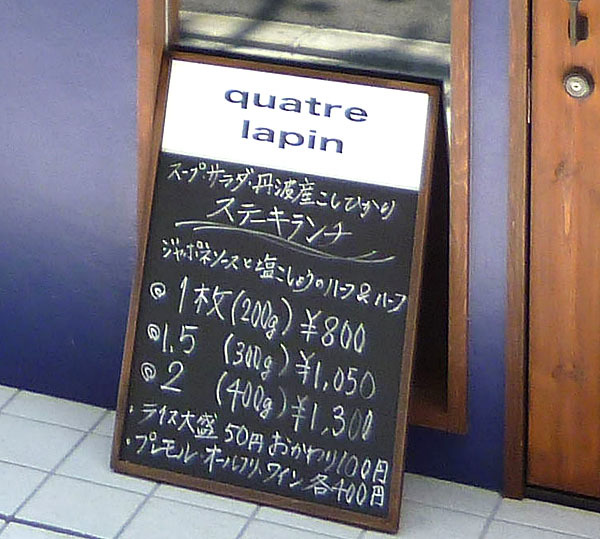 quatre
lapin
スープ・サラダ・丹波産こしひかり
ステーキランチ
ジャポネソースと塩こしょうのハーフ&ハーフ
◎ 1枚(200g) ¥800
◎ 1.5 (300g) ¥1,050
◎ 2 (400g) ¥1,300
・ライス大盛50円おかわり100円
・プレモル・オールフリー・ワイン各400円